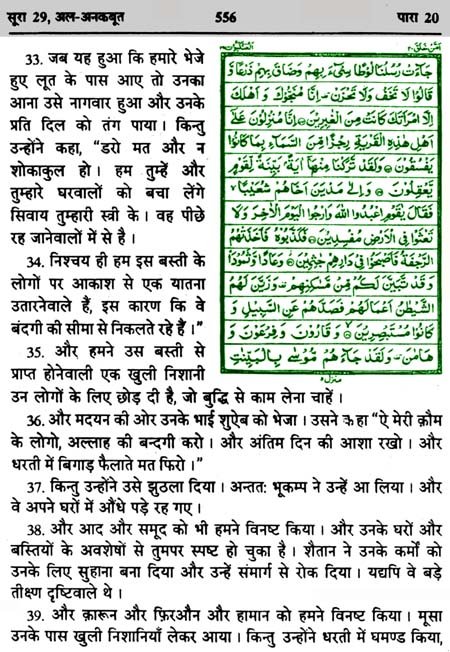 सूरा 29, अल-अनकबूत
556
पारा 20
33. जब यह हुआ कि हमारे भेजे
हुए लूत के पास आए तो उनका
आना उसे नागवार हुआ और उनके
प्रति दिल को तंग पाया। किन्तु
उन्होंने कहा, "डरो मत और न
शोकाकुल हो। हम तुम्हें और
तुम्हारे घरवालों को बचा लेंगे
सिवाय तुम्हारी स्त्री के। वह पीछे
रह जानेवालों में से है।
34. निश्चय ही हम इस बस्ती के
लोगों पर आकाश से एक यातना
उतारनेवाले हैं, इस कारण कि वे
बंदगी की सीमा से निकलते रहे हैं।"
35. और हमने उस बस्ती से
प्राप्त होनेवाली एक खुली निशानी
جَآءَتْ رُسُلُنَا لُوْطًا سِیْٓءَ بِهِمْ وَضَاقَ بِهِمْ ذَرْعًا وَّ
قَالُوْا لَا تَخَفْ وَلَا تَحْزَنْ اِنَّا مُنَجُّوْكَ وَ اَهْلَكَ
اِلَّا امْرَاَتَكَ كَانَتْ مِنَ الْغٰبِرِیْنَ اِنَّا مُنْزِلُوْنَ عَلٰۤی
اَهْلِ هٰذِهِ الْقَرْیَةِ رِجْزًا مِّنَ السَّمَآءِ بِمَا كَانُوْا
یَفْسُقُوْنَ وَلَقَدْ تَّرَكْنَا مِنْهَاۤ اٰیَةًۢ بَیِّنَةً لِّقَوْمٍ
یَّعْقِلُوْنَ وَ اِلٰی مَدْیَنَ اَخَاهُمْ شُعَیْبًا
فَقَالَ یٰقَوْمِ اعْبُدُوا اللّٰهَ وَارْجُوا الْیَوْمَ الْاٰخِرَ وَلَا
تَعْثَوْا فِی الْاَرْضِ مُفْسِدِیْنَ فَكَذَّبُوْهُ فَاَخَذَتْهُمُ
الرَّجْفَةُ فَاَصْبَحُوْا فِیْ دَارِهِمْ جٰثِمِیْنَ وَعَادًا وَّثَمُوْدَا
وَ قَدْ تَّبَیَّنَ لَكُمْ مِّنْ مَّسٰكِنِهِمْ وَزَیَّنَ لَهُمُ
الشَّیْطٰنُ اَعْمَالَهُمْ فَصَدَّهُمْ عَنِ السَّبِیْلِ وَ
كَانُوْا مُسْتَبْصِرِیْنَ وَ قَارُوْنَ وَ فِرْعَوْنَ وَ
هَامٰنَ وَلَقَدْ جَآءَهُمْ مُّوْسٰی بِالْبَیِّنٰتِ
उन लोगों के लिए छोड़ दी है, जो बुद्धि से काम लेना चाहें।
36. और मदयन की ओर उनके भाई शुऐब को भेजा। उसने कहा "ऐ मेरी क़ौम
के लोगो, अल्लाह की बन्दगी करो। और अंतिम दिन की आशा रखो। और
धरती में बिगाड़ फैलाते मत फिरो।"
37. किन्तु उन्होंने उसे झुठला दिया। अन्ततः भूकम्प ने उन्हें आ लिया। और
वे अपने घरों में औंधे पड़े रह गए।
38. और आद और समूद को भी हमने विनष्ट किया। और उनके घरों और
बस्तियों के अवशेषों से तुमपर स्पष्ट हो चुका है। शैतान ने उनके कर्मों को
उनके लिए सुहाना बना दिया और उन्हें संमार्ग से रोक दिया। यद्यपि वे बड़े
तीक्ष्ण दृष्टिवाले थे।
39. और क़ारून और फ़िरऔन और हामान को हमने विनष्ट किया। मूसा
उनके पास खुली निशानियाँ लेकर आया। किन्तु उन्होंने धरती में घमण्ड किया,